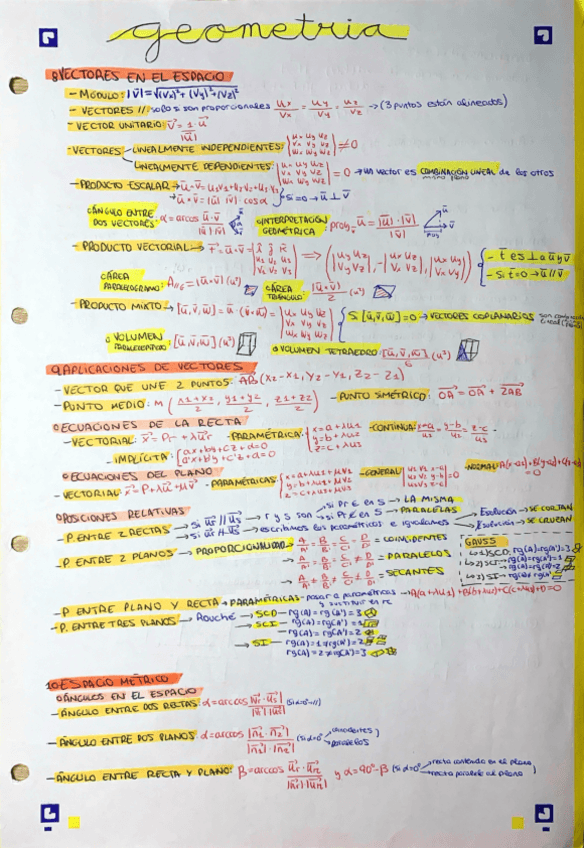 geometria
8 VECTORES EN EL ESPACIO
- MÓDULO: |v̄| = √(Vx)² + (Vy)² + (Vz)²
- VECTORES // solo si son proporcionales Ux/Vx = Uy/Vy = Uz/Vz → (3 puntos están alineados)
- VECTOR UNITARIO:
- VECTORES
LINEALMENTE INDEPENDIENTES: |Ux Uy Uz Vx Vy Vz Wx Wy Wz| ≠ 0
LINEALMENTE DEPENDIENTES: |Ux Uy Uz Vx Vy Vz Wx Wy Wz| = 0 → un vector es COMBINACIÓN LINEAL de los otros
mismo plano
- PRODUCTO ESCALAR → ū·v̄ = U1V1+U2V2+U3V3
→ ū·v̄ = |ū|·|v̄|·cos α
si = 0 → ū ⊥ v̄
ÁNGULO ENTRE DOS VECTORES: α = arcos ū·v̄/|ū|·|v̄|
INTERPRETACIÓN GEOMÉTRICA:
- PRODUCTO VECTORIAL →
- t̄ es ⊥ a ū y v̄
- Si t̄=0 → ū // v̄
ÁREA PARALELOGRAMO: A = |ū×v̄| (u²)
ÁREA TRIÁNGULO: |ū×v̄|/2 (u²)
- PRODUCTO MIXTO → [ū,v̄,w̄] = ū·(v̄×w̄) = |Ux Uy Uz Vx Vy Vz Wx Wy Wz|
Si [ū,v̄,w̄]=0 → VECTORES COPLANARIOS
VOLUMEN PARALELEPÍPEDO: [ū,v̄,w̄] (u³)
VOLUMEN TETRAEDRO: [ū,v̄,w̄]/6 (u³)
9. APLICACIONES DE VECTORES
- VECTOR QUE UNE 2 PUNTOS: AB (x2-x1, y2-y1, z2-z1)
- PUNTO MEDIO: M (x1+x2/2, y1+y2/2, z1+z2/2)
- PUNTO SIMÉTRICO: OA' = OA + 2AB
ECUACIONES DE LA RECTA
- VECTORIAL: x = Pr + λur
- PARAMÉTRICA: x=a+λu1 y=b+λu2 z=c+λu3
- CONTINUA: x-a/u1 = y-b/u2 = z-c/u3
- IMPLÍCITA: ax+by+cz+d=0 a'x+b'y+c'z+d'=0
ECUACIONES DEL PLANO
- VECTORIAL: x = P+λu+μv
- PARAMÉTRICAS: x=a+λu1+μv1 y=b+λu2+μv2 z=c+λu3+μv3
- GENERAL
- NORMAL: A(x-a)+B(y-b)+C(z-c) =0
POSICIONES RELATIVAS
- P. ENTRE 2 RECTAS
si ur // us → r y s son
si Pr ∈ en S → LA MISMA
si Pr ∉ en S → PARALELAS
si ur ∦ us → escribimos las paramétricas e igualamos
solución → SE CORTAN
∄ solución → SE CRUZAN
- P. ENTRE 2 PLANOS PROPORCIONALIDAD
A/A' = B/B' = C/C' = D/D' = COINCIDENTES
A/A' = B/B' = C/C' ≠ D/D' = PARALELOS
A/A' ≠ B/B' ≠ C/C' ≠ D/D' = SECANTES
GAUSS
→ 1) SCD: rg(A)=rg(A')=3
→ 2) SCI - rg(A)=rg(A')=1
rg(A)=rg(A')=2
→ 3) SI -
- P ENTRE PLANO Y RECTA → PARAMÉTRICAS - pasar a paramétricas y sustituir en π → A(a+λu1)+B(b+λu2)+C(c+λu3)+D=0
- P. ENTRE TRES PLANOS → Rouché
→ SCD - rg(A)=rg(A')=3
→ SCI - rg(A)=rg(A')=1
- rg(A)=rg(A')=2
→ SI - rg(A)=1≠rg(A')=2
rg(A)=2≠rg(A')=3
10. ESPACIO MÉTRICO
ÁNGULOS EN EL ESPACIO
- ÁNGULO ENTRE DOS RECTAS: α = arcos |ur·us|/|ur|·|us| (si α=0º → //)
- ÁNGULO ENTRE DOS PLANOS: α = arcos |n1·n2|/|n1|·|n2| (si α=0º coincidentes paralelos
- ÁNGULO ENTRE RECTA Y PLANO: β = arccos y α = 90º-β (si α=0º recta contenida en el plano recta paralela al plano)